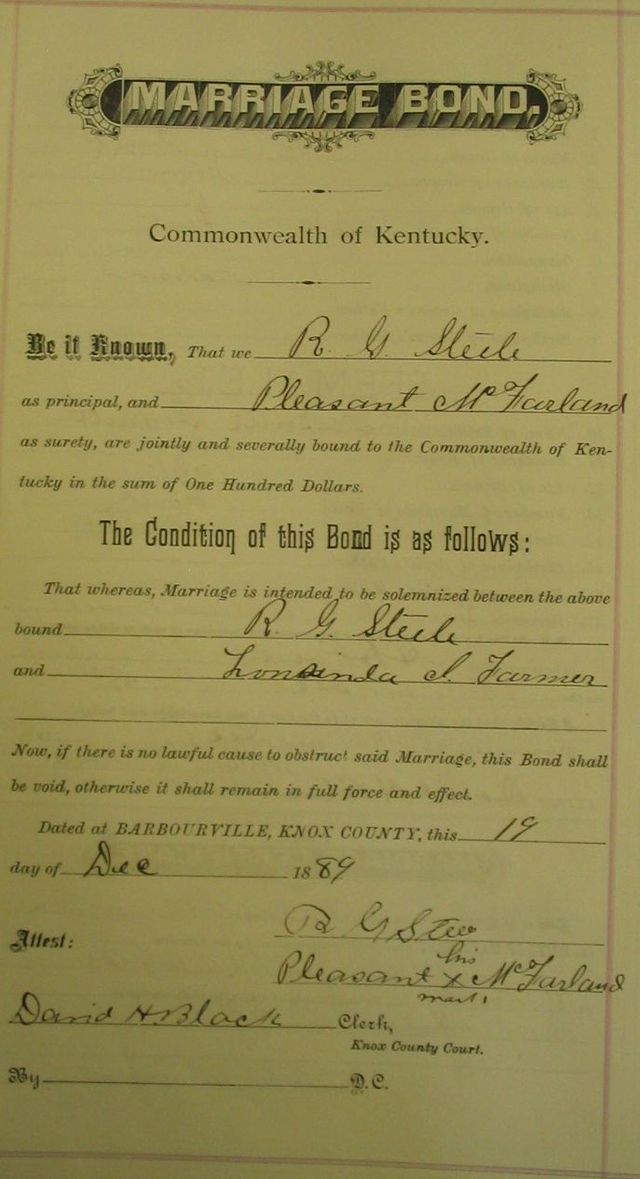 MARRIAGE BOND.
Commonwealth of Kentucky.
Be it Known, That we R. G. Steele
as principal, and Pleasant McFarland
as surety, are jointly and severally bound to the Commonwealth of Ken-
tucky in the sum of One Hundred Dollars.
The Condition of this Bond is as follows:
That whereas, Marriage is intended to be solemnized between the above
bound R. G. Steele
and Farmer
Now, if there is no lawful cause to obstruct said Marriage, this Bond shall
be void, otherwise it shall remain in full force and effect.
Dated at BARBOURVILLE, KNOX COUNTY, this 19
day of Dec 1889
R G Stee
Attest:
his
Pleasant X McFarland
mark
David H. Black Clerk,
Knox County Court.
By D.C.